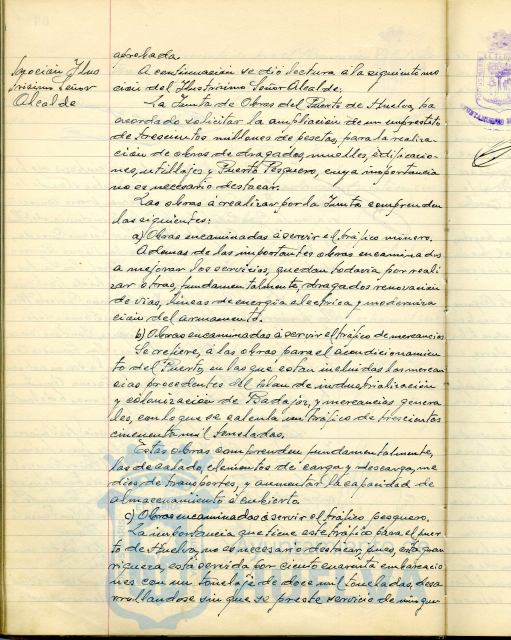 Moción Ilus
trísimo Señor
Alcalde
aprobada.
A continuación se dió lectura á la siguiente mo
ción del Ilustrísimo Señor Alcalde:
La Junta de Obras del Puerto de Huelva, ha
acordado solicitar la ampliación de un empréstito
de trescientos millones de pesetas, para la realiza-
ción de obras de dragados, muelles, edificacio-
nes, utillajes y Puerto Pesquero, cuya importancia
no es necesario destacar.
Las obras á realizar por la Junta comprenden
las siguientes:
a) Obras encaminadas á servir el tráfico minero.
Ademas de las importantes obras encaminadas
a mejorar los servicios, quedan todavia por reali
zar otras, fundamentalmente, dragados renovación
de vias, líneas de energia eléctrica y moderniza
ción del armamento.
b) Obras encaminadas á servir el tráfico de mercancias
Se refiere, á las obras para el acondicionamien
to del Puerto, en las que estan incluidas las mercan
cias procedentes del plan de industrialización
y colonización de Badajoz, y mercancias genera
les, con lo que se calcula un tráfico de trescientos
cincuenta mil toneladas.
Estas obras comprenden fundamentalmente,
las de calado, elementos de carga y descarga, me
dios de transportes, y aumentar la capacidad de
almacenamiento á cubierto.
c) Obras encaminadas á servir el tráfico pesquero.
La importancia que tiene este tráfico para el puer
to de Huelva, no es necesario destacar, pues, esta gran
riqueza, está servida por ciento cuarenta embarcacio
nes con un tonelaje de doce mil toneladas, desa
rrollandose sin que se preste servicio de ningun